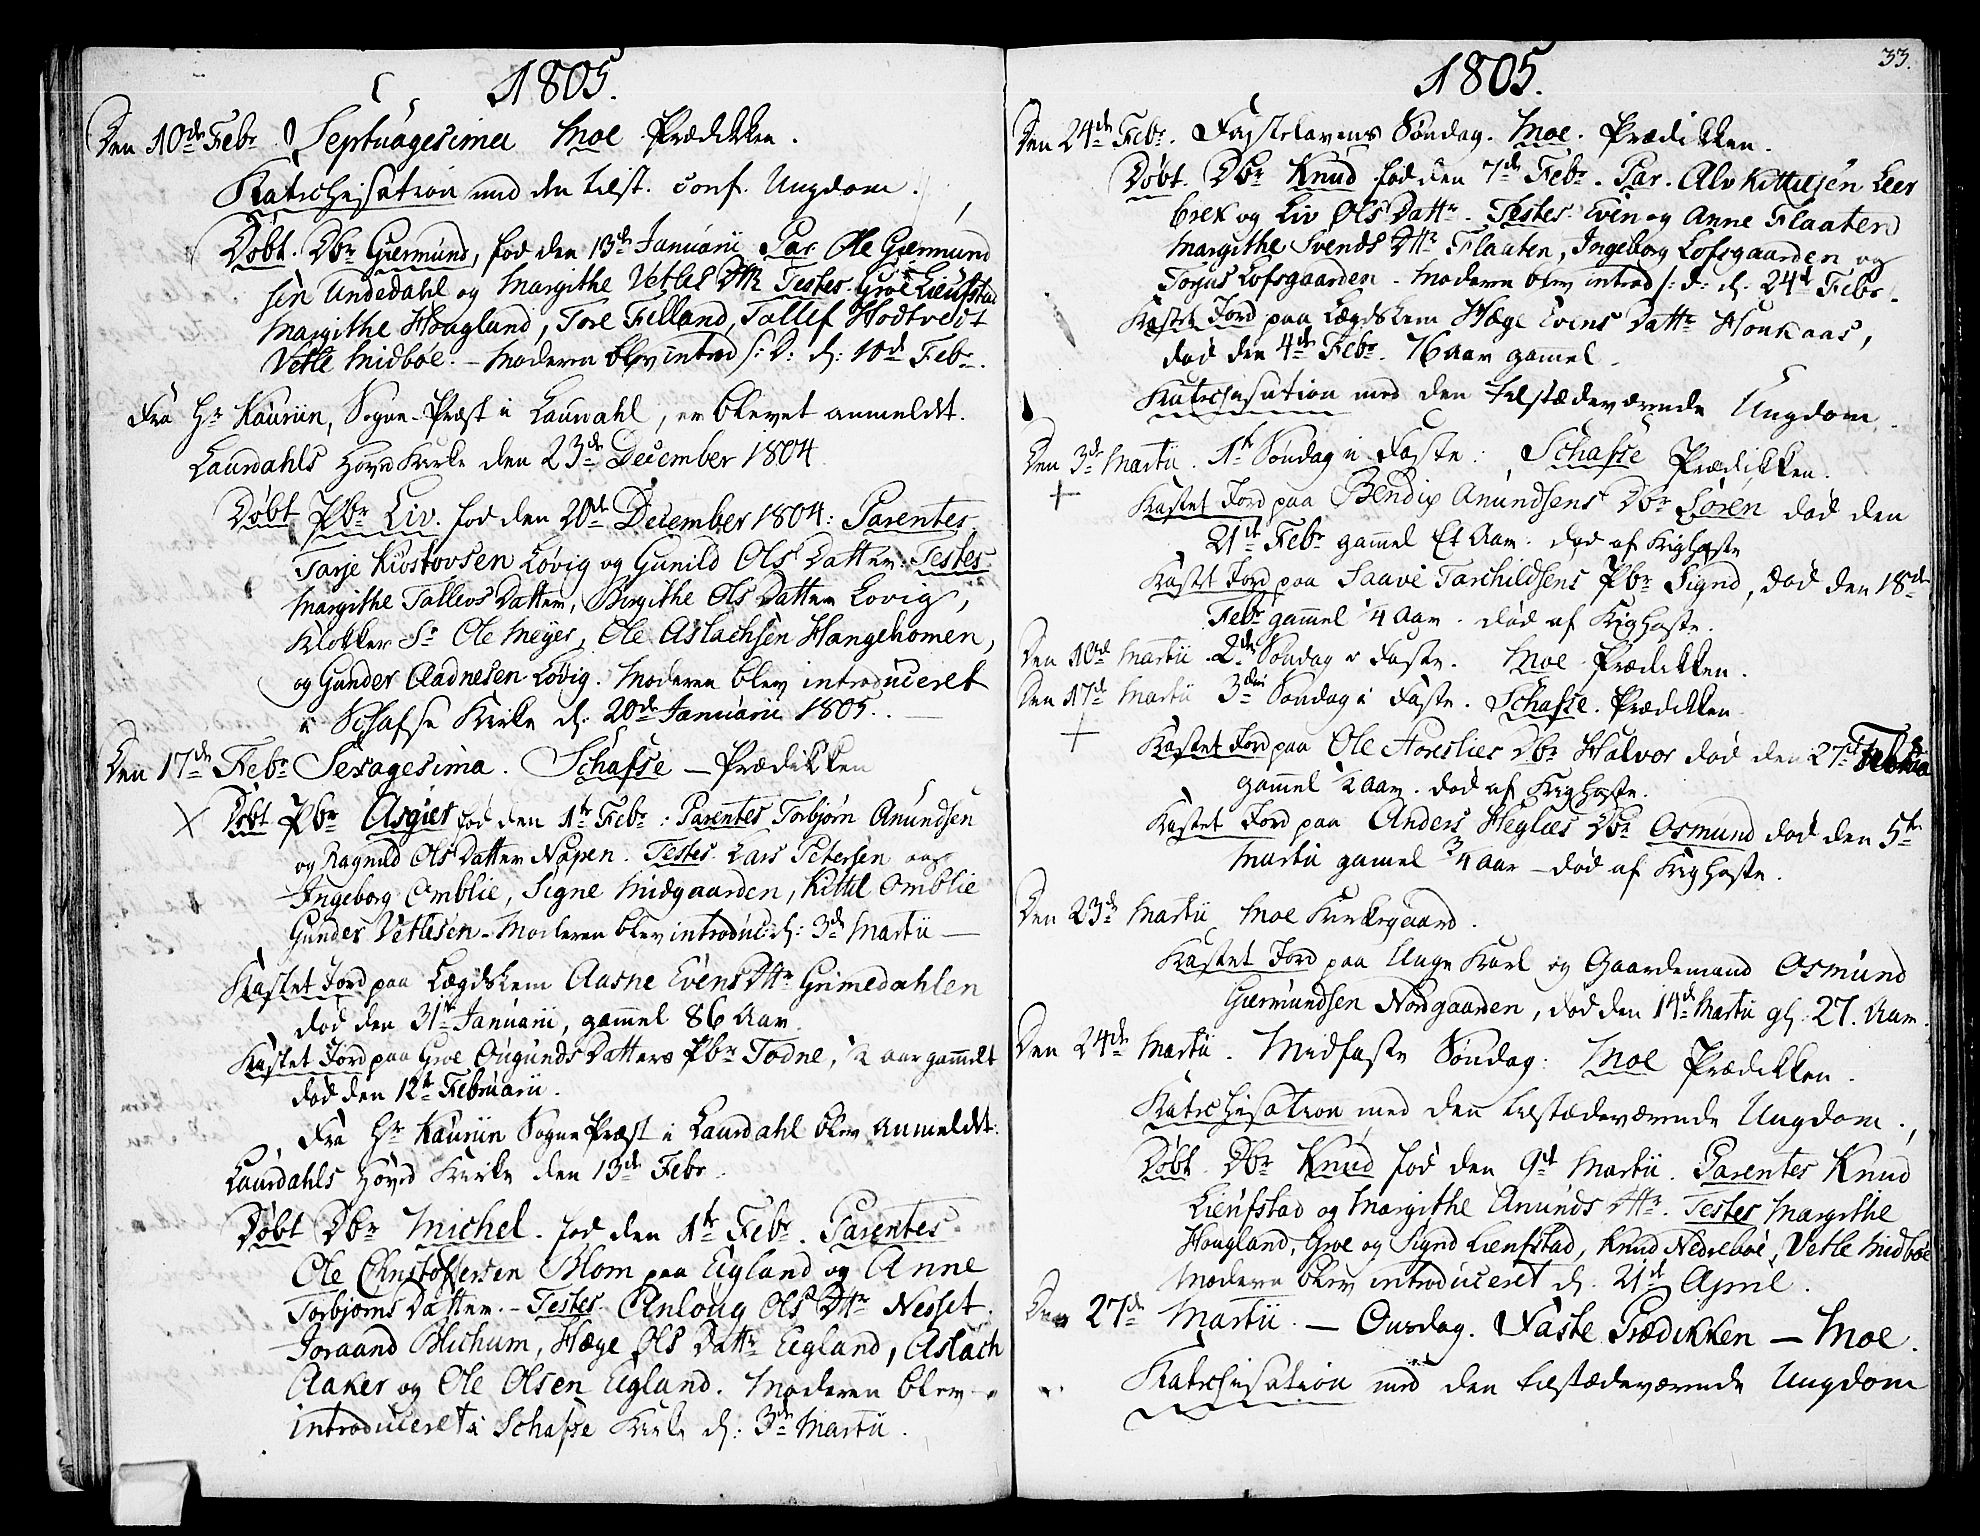 1805.
Den 10de Febr. Septuagesima Moe Prædikken.
Katechisation med den tilst. conf. Ungdom.
Døbt. Dbr Giermund, fød den 13de Januarii Par Ole Giermund
sen Undedahl og Margithe Vetles Dtr Testes. Groe Lieufstad
Margithe Hougland, Tore Felland, Tallef Hodtvedt
Vetle Midbøe. - Moderen blev introd s: D: d: 10de Febr.
Fra Hr Kaurin, Sogne-Præst i Laurdahl, er blevet anmeldt.
Laurdahls Hovd Kirke den 23de December 1804
Døbt Pbr Liv. fød den 20de December 1804: Parentes
Tarje Kiostovsen Løvig og Gunild Ols Datter. Testes
Margithe Tallevs Datter, Birgithe Ols Datter Lovig,
Klokker Sr Ole Meyer, Ole Aslachsen Hangehomen,
og Gunder Aadnesen Løvig. Moderen blev introduceret
i Schafse Kirke d: 20de Januarii 1805.
Den 17de Febr Sexagesima. Schafse - Prædikken
X Døbt Pbr Asgier fød den 1te Febr: Parentes Torbjørn Anundsen
og Ragnild Ols Datter Napen. Testes. Lars Petersen og
Ingeborg Omblie, Signe Midgaarden, Kittil Omblie
Gunder Vetlesen - Moderen blev introduc: d: 3de Martii -
Kastet Jord paa Lægdslem Aasne Evens Dtr Grimedahlen
død den 31te Januarii, gammel 86 Aar.
Kastet Jord paa Groe Ougunds Datters Pbr Todne, 1/2 aar gammelt
død den 12te Februarii.
Fra Hr Kaurin Sogne Præst i Laurdahl blev anmeldt:
Laurdahls Hovd Kirke den 13de Febr.
Døbt Dbr Michel. fød den 1te Febr. Parentes
Ole Christoffersen Blom paa Eigland og Anne
Torbjørns Datter. - Testes. Anloug Ols Dtr Nesset.
Joraand Bichum, Hæge Ols Datr Eigland, Aslach
Aaker og Ole Olsen Eigland. Moderen blev
introduceret i Schafse Kirke d: 3de Martii.
33.
1805.
Den 24de Febr. Fastelavens Søndag. Moe. Prædikken.
Døbt. Dbr Knud fød den 7de Febr. Par. Alv Kittilsen Leer
brek og Liv Ols Dattr. Testes. Even og Anne Flaaten
Margithe Svends Dtr Flaaten, Ingeborg Lofsgaarden og
Torjus Lofsgaarden - Moderen blev introd s: D: d. 24de Febr.
Kastet Jord paa Lægdslem Hæge Evens Dattr Honkaas,
død den 4de Febr. 76 Aar gammel.
Katechisation med den tilstædeværende Ungdom.
Den 3de Martii. 1te Søndag i Faste: Schafse Prædikken.
+
Kastet Jord paa Bendix Anundsens Dbr Søren død den
21te Febr gammel Et Aar. død af Kighoste
Kastet Jord paa Saave Tarchildsens Pbr Signd, død den 18de
Febr gammel 1/4 Aar. død af Kighoste.
Den 10de Martii 2den Søndag i Faste. Moe Prædikken.
Den 17de Martii 3die Søndag i Faste. Schafse. Prædikken
+
Kastet Jord paa Ole Horeslies Dbr Halvor død den 27de
gammel 1/2 aar. død af Kighoste.
Kastet Jord paa Anders Heglies Dbr Osmund død den 5te
Martii gamel 3/4 aar - død af Kighoste.
Den 23de Martii Moe Kirkegaard.
Kastet Jord paa Unge Karl og Gaardemand Osmund
Giermundsen Nordgaarden, død den 14de Martii gl: 27. Aar.
Den 24de Martii. Midfaste Søndag: Moe Prædikken.
Katechisation med den tilstædeværende Ungdom.
Døbt. Dbr Knud fød den 9de Martii. Parentes Knud
Lieufstad og Margithe Anunds Dtr. Testes Margithe
Hougland, Groe og Signd Lieufstad, Knud Nedrebøe, Vetle Midbøe
Moderen blev introduceret d. 21de April.
Den 27de Martii. - Onsdag. Faste Prædikken - Moe.
Katechisation med den tilstædeværende Ungdom